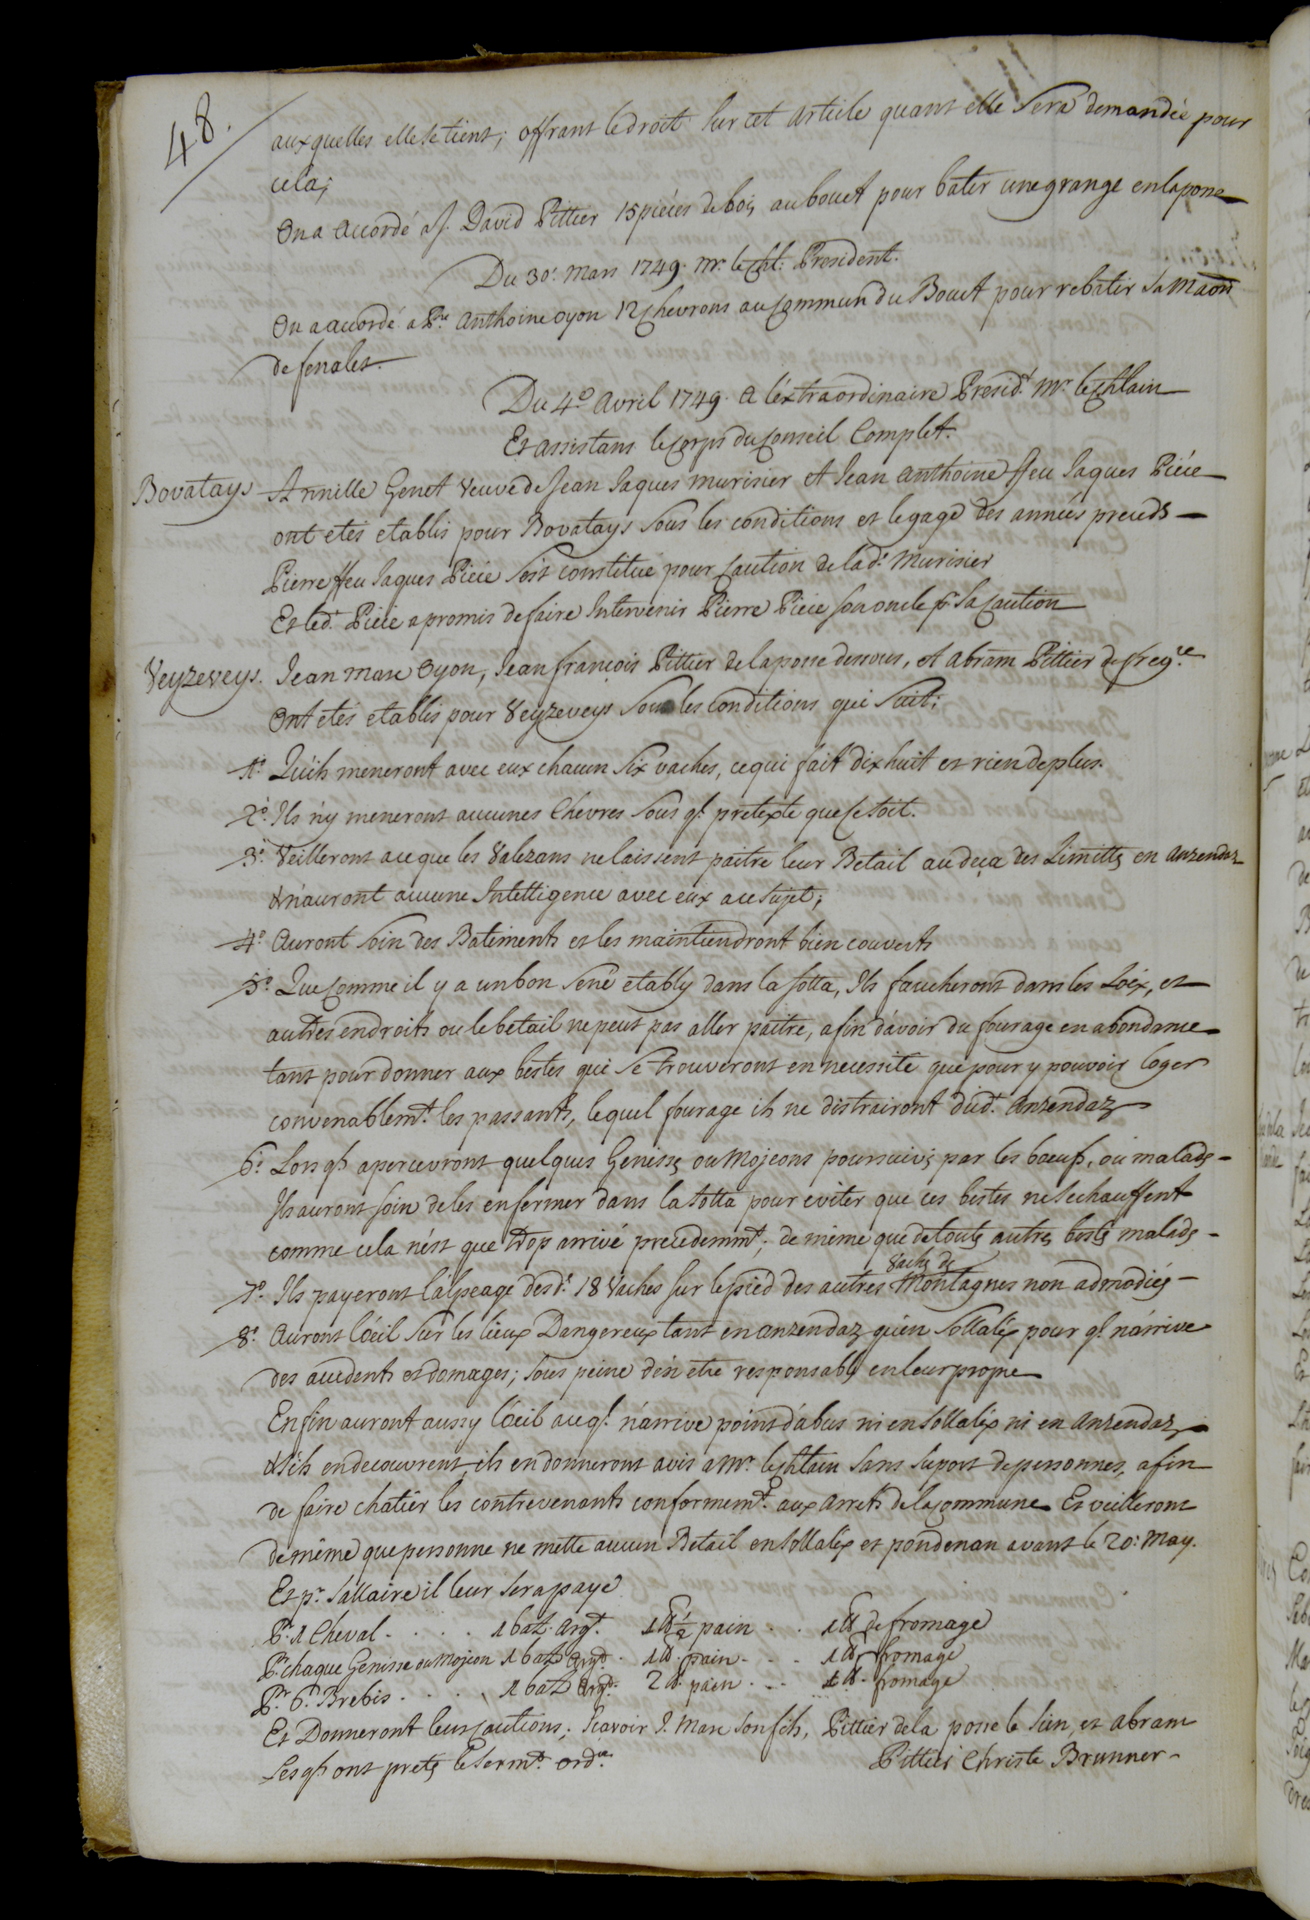 48.
auxquelles elle se tient; offrant le droit sur cet article quant elle sera demandée pour
cela;
On a accordé a J. David Pittier 15 piéces de bois au bouet pour batir une grange en la posse
Du 30e. Mars 1749. Mr. le Chl. President.
On a accordé a Pre Anthoine Oyon 12 Chevrons au Commun du Bouet pour rebatir sa maon
de fenalet.
Du 4e. Avril 1749. A l'éxtraordinaire Presidt. Mr. le Chlain
Et assistans le Corps du Conseil Complet.
Bovatays Annille Genet veuve de Jean Jaques murisier et Jean Anthoine ffeu Jaques Piéce
ont etés etablis pour Bovatays sous les conditions et le gage des années preceds
Pierre ffeu Jaques Piéce s'est constitue pour Caution de lad. Murisier
Et led. Piéce a promis de faire Intervenir Pierre Piéce son oncle pr. sa Caution
Veyzeveys. Jean Marc Oyon, Jean françois Pittier de la posse dessous, et Abram Pittier de
Ont etés etablis pour Veyzeveys Sous les Conditions qui suit;
1o. Qu'ils meneront avec eux chacun six vaches, ce qui fait dixhuit et rien de plus.
2o. Ils n'y meneront aucunes Chevres sous ql. pretexte que se soit.
3o. Veilleront a ce que les Valezans ne laissent paitre leur Betail au deça des Limitts en Anzendaz
& n'auront aucune Intelligence avec eux a ce sujet;
4o. Auront soin des Batiments et les maintiendront bien couverts
5o. Que Comme il y a un bon sené etably dans la sotta, Ils faucheront dans les Loëx, et
autres endroits ou le bétail ne peut pas aller paitre, afin d'avoir du fourage en abondance
tant pour donner aux bestes qui se trouveront en necessité que pour y pouvoir loger
convenablemt. les passants, lequel fourage ils ne distrairont dud. Anzendaz
6o. Lors qls apercevront quelques Genisses ou Mojeons poursuivis par les boeufs, ou malads
Ils auront soin de les enfermer dans la sotta pour eviter que ces bestes ne s'echauffent
comme cela n'est que trop arrivé precedemmt. de méme que de touts autres bests malads
7o. Ils payeront l'alpeage desd. 18 Vaches sur le pied des autres Vachs de Montagnes non admodiés
8o. Auront l'oeil sur les lieux Dangereux tant en Anzendaz qu'en Sollalex pour ql. n'arrive
des accidents et domages; sous peine d'en etre responsabls en leur propre
Enfin auront aussy l'oeil a ce ql. n'arrive point d'abus ni en Sollalex ni en Anzendaz
& s'ils en decouvrent, ils en donneront avis a Mr. le Chlain sans suport de personnes, afin
de faire chatier les contrevenants conformemt. aux arrets de la Commune Et veilleront
de méme que personne ne mette aucun Betail en Sollalex et pondenan avant le 20e. May.
Et pr. sallaire il leur sera payé
Pr. 1 Cheval . . . . 1 batz. argt. 1 lb ½ pain . . 1 lb de fromage
Pr. chaque Genisse ou Mojeon 1 batz argt. 1 lb. pain . . . 1 lb. fromage
Pr. 6 Brebis . . . . 1 batz argt. 2 lb. pain . . . 1 lb. fromage
Et Donneront leurs Cautions; Scavoir J. Marc son fils, Pittier de la posse le sien, et Abram
Pittier Christe Brunner
Lesqls ont pretés le sermt. ordre.